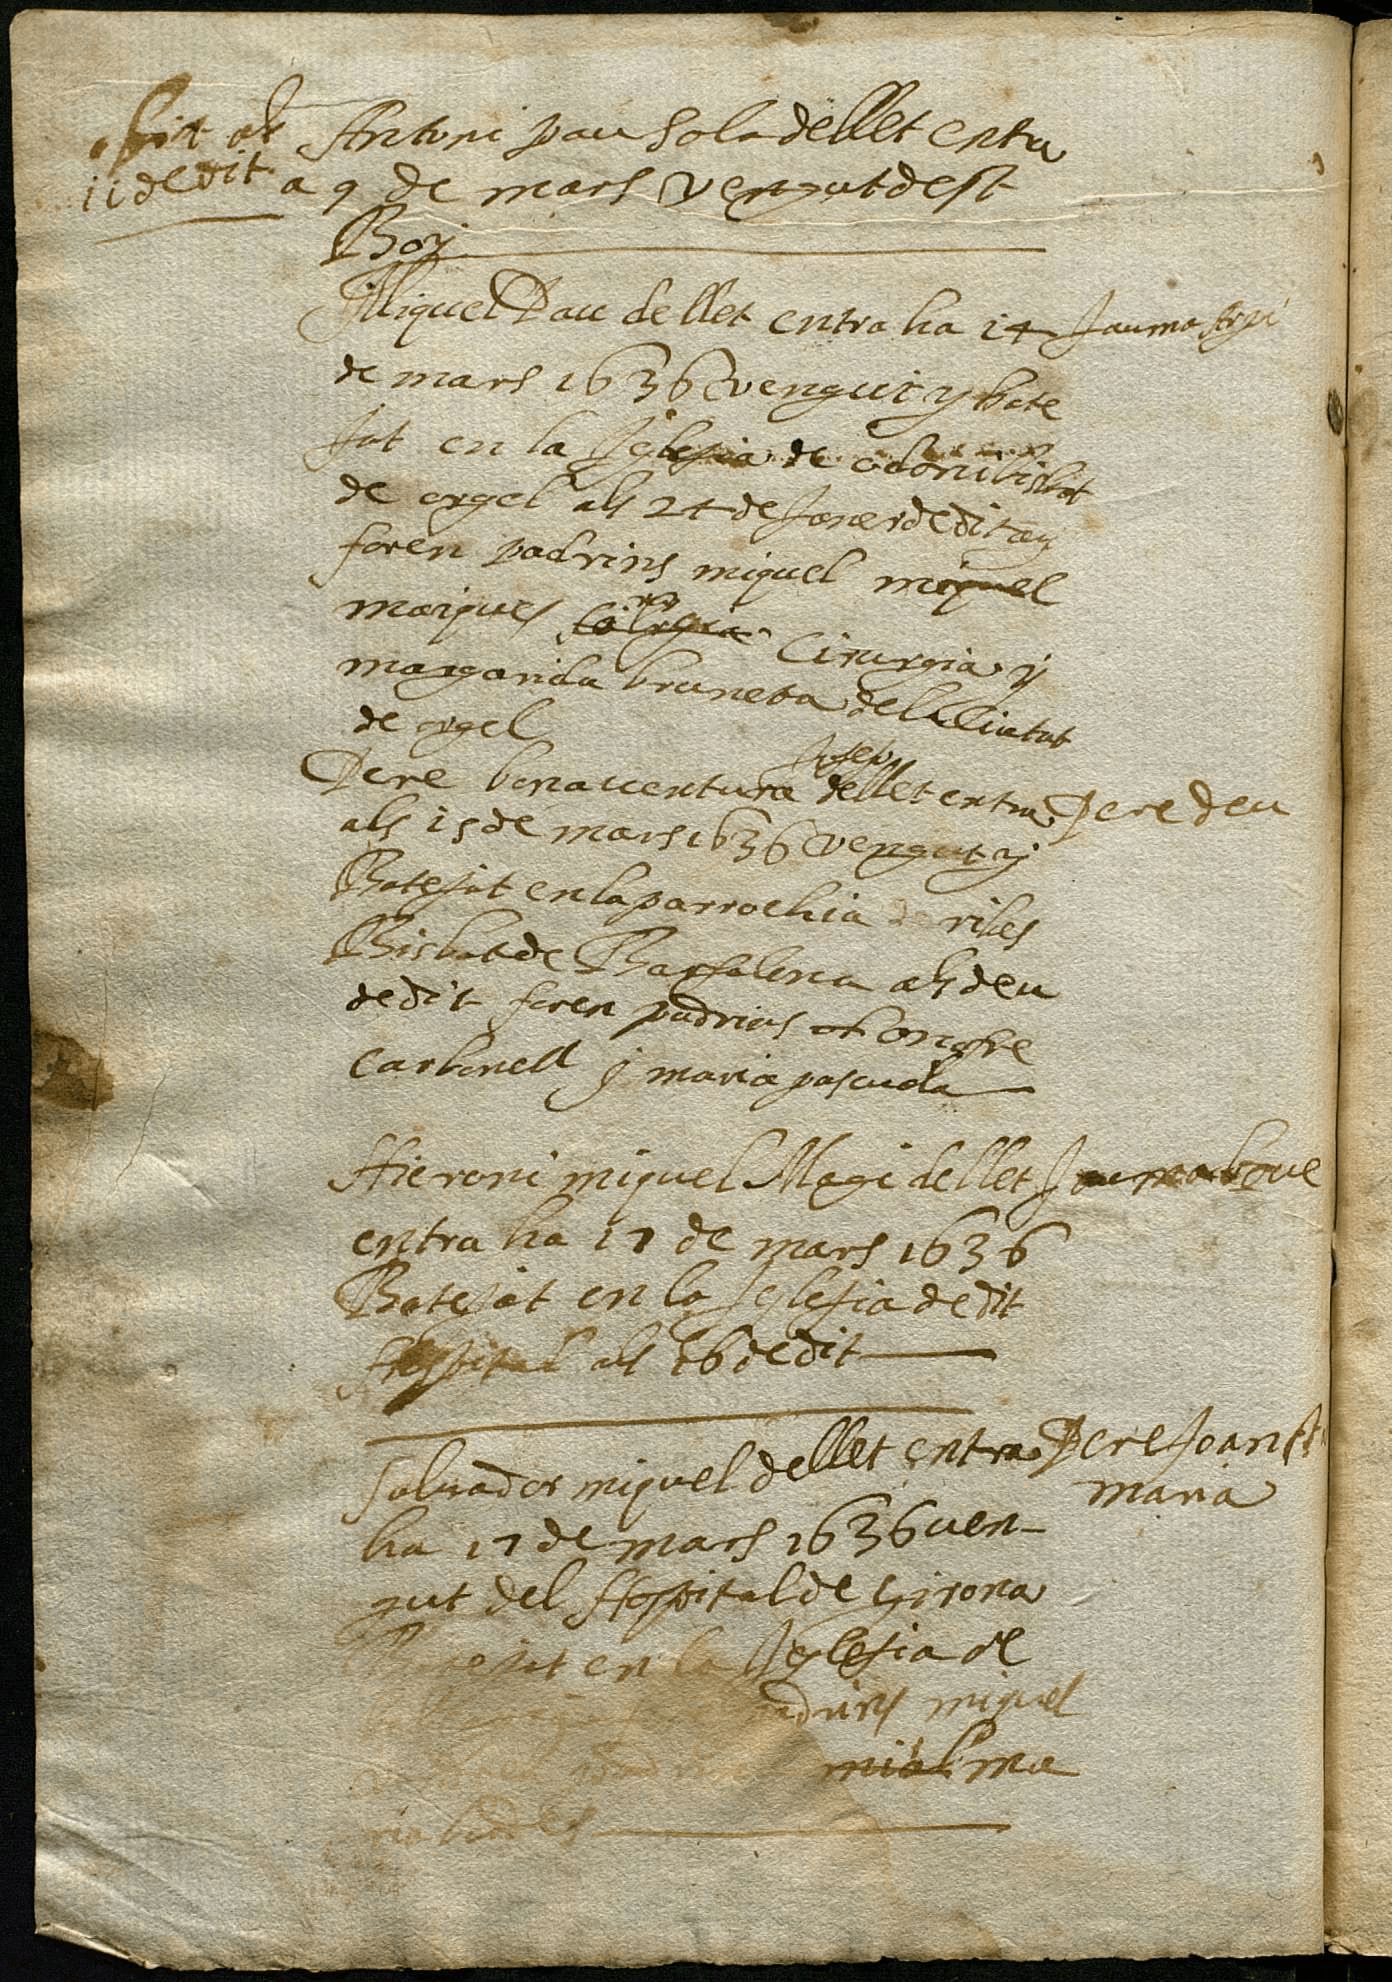 obiit als
11 de dit
Antoni pau Sola de llet entra
a 9 de mars vengut de st
Boy
Miquel Pau de llet entra ha 14
Jauma
de mars 1636 vengut y bate
jat en la Iglesia de bisbat
de orgel als 24 de Janer de dit any
foren padrins miquel miquel
marques Cirurgia y
margarida bruneta de la Ciutat
de orgel
Josep
Pere bonaventura de llet entra
Pere deu
als 15 de mars 1636 vengut y
Batejat en la parrochia de ribes
Bisbat de Barsalona als deu
de dit foren padrins onofre
Carbonell y maria pascuala
Hieroni miquel Magi de llet
Jauma boue
entra ha 17 de mars 1636
Batejat en la Iglesia de dit
Hospital als 16 de dit
Saluador miquel de llet entra
Pere Joan
maria
ha 17 de mars 1636 ven-
gut del Hospital de Girona
Batejat en la Iglesia de
padrins miquel
ma
ria